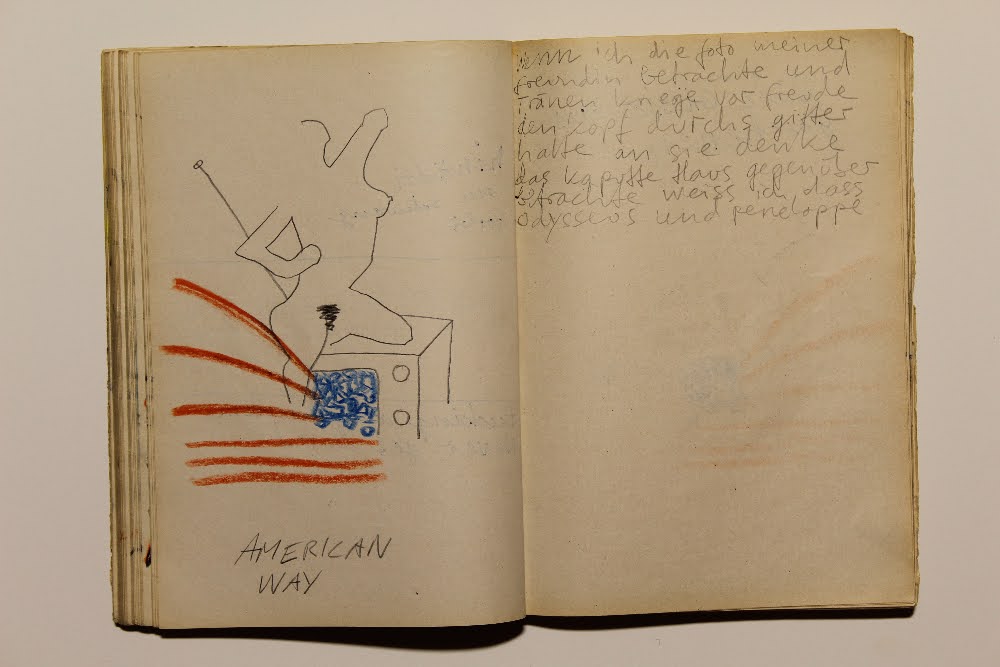 AMERICAN
WAY
wenn ich die foto meiner
freundin betrachte und
tränen kriege vor freude
den kopf durchs gitter
halte an sie denke
das kaputte Haus gegenüber
betrachte weiss ich dass
odysseus und peneloppe